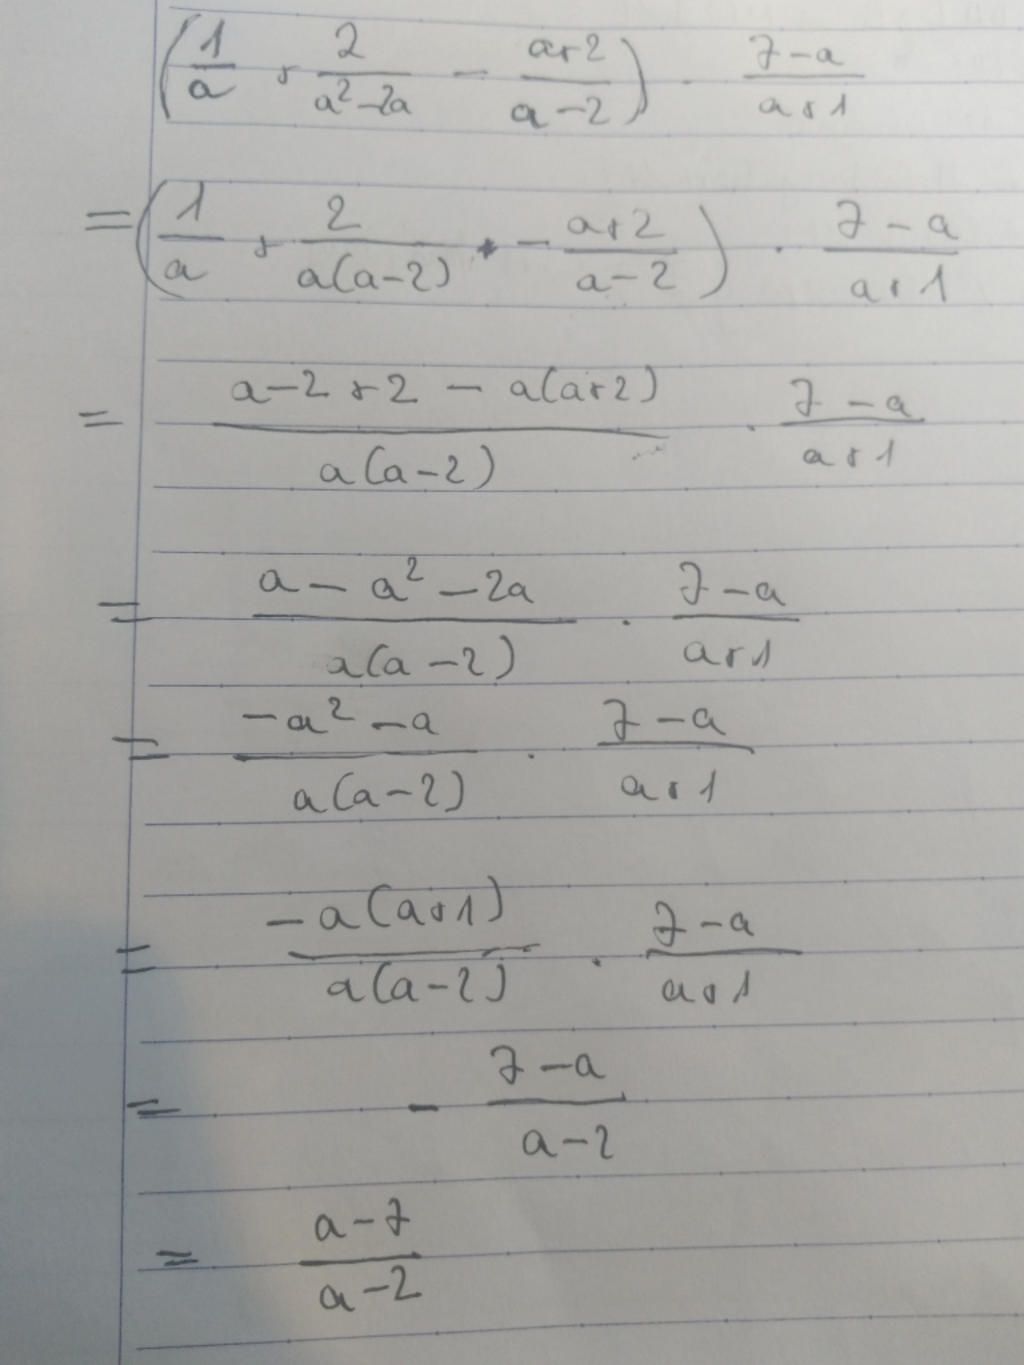 (1/a + 2/(a²-2a) - (a+2)/(a-2)) · (7-a)/(a+1)
= (1/a + 2/(a(a-2)) - (a+2)/(a-2)) · (7-a)/(a+1)
= (a-2+2-a(a+2))/(a(a-2)) · (7-a)/(a+1)
= (a-a²-2a)/(a(a-2)) · (7-a)/(a+1)
= (-a²-a)/(a(a-2)) · (7-a)/(a+1)
= (-a(a+1))/(a(a-2)) · (7-a)/(a+1)
= - (7-a)/(a-2)
= (a-7)/(a-2)